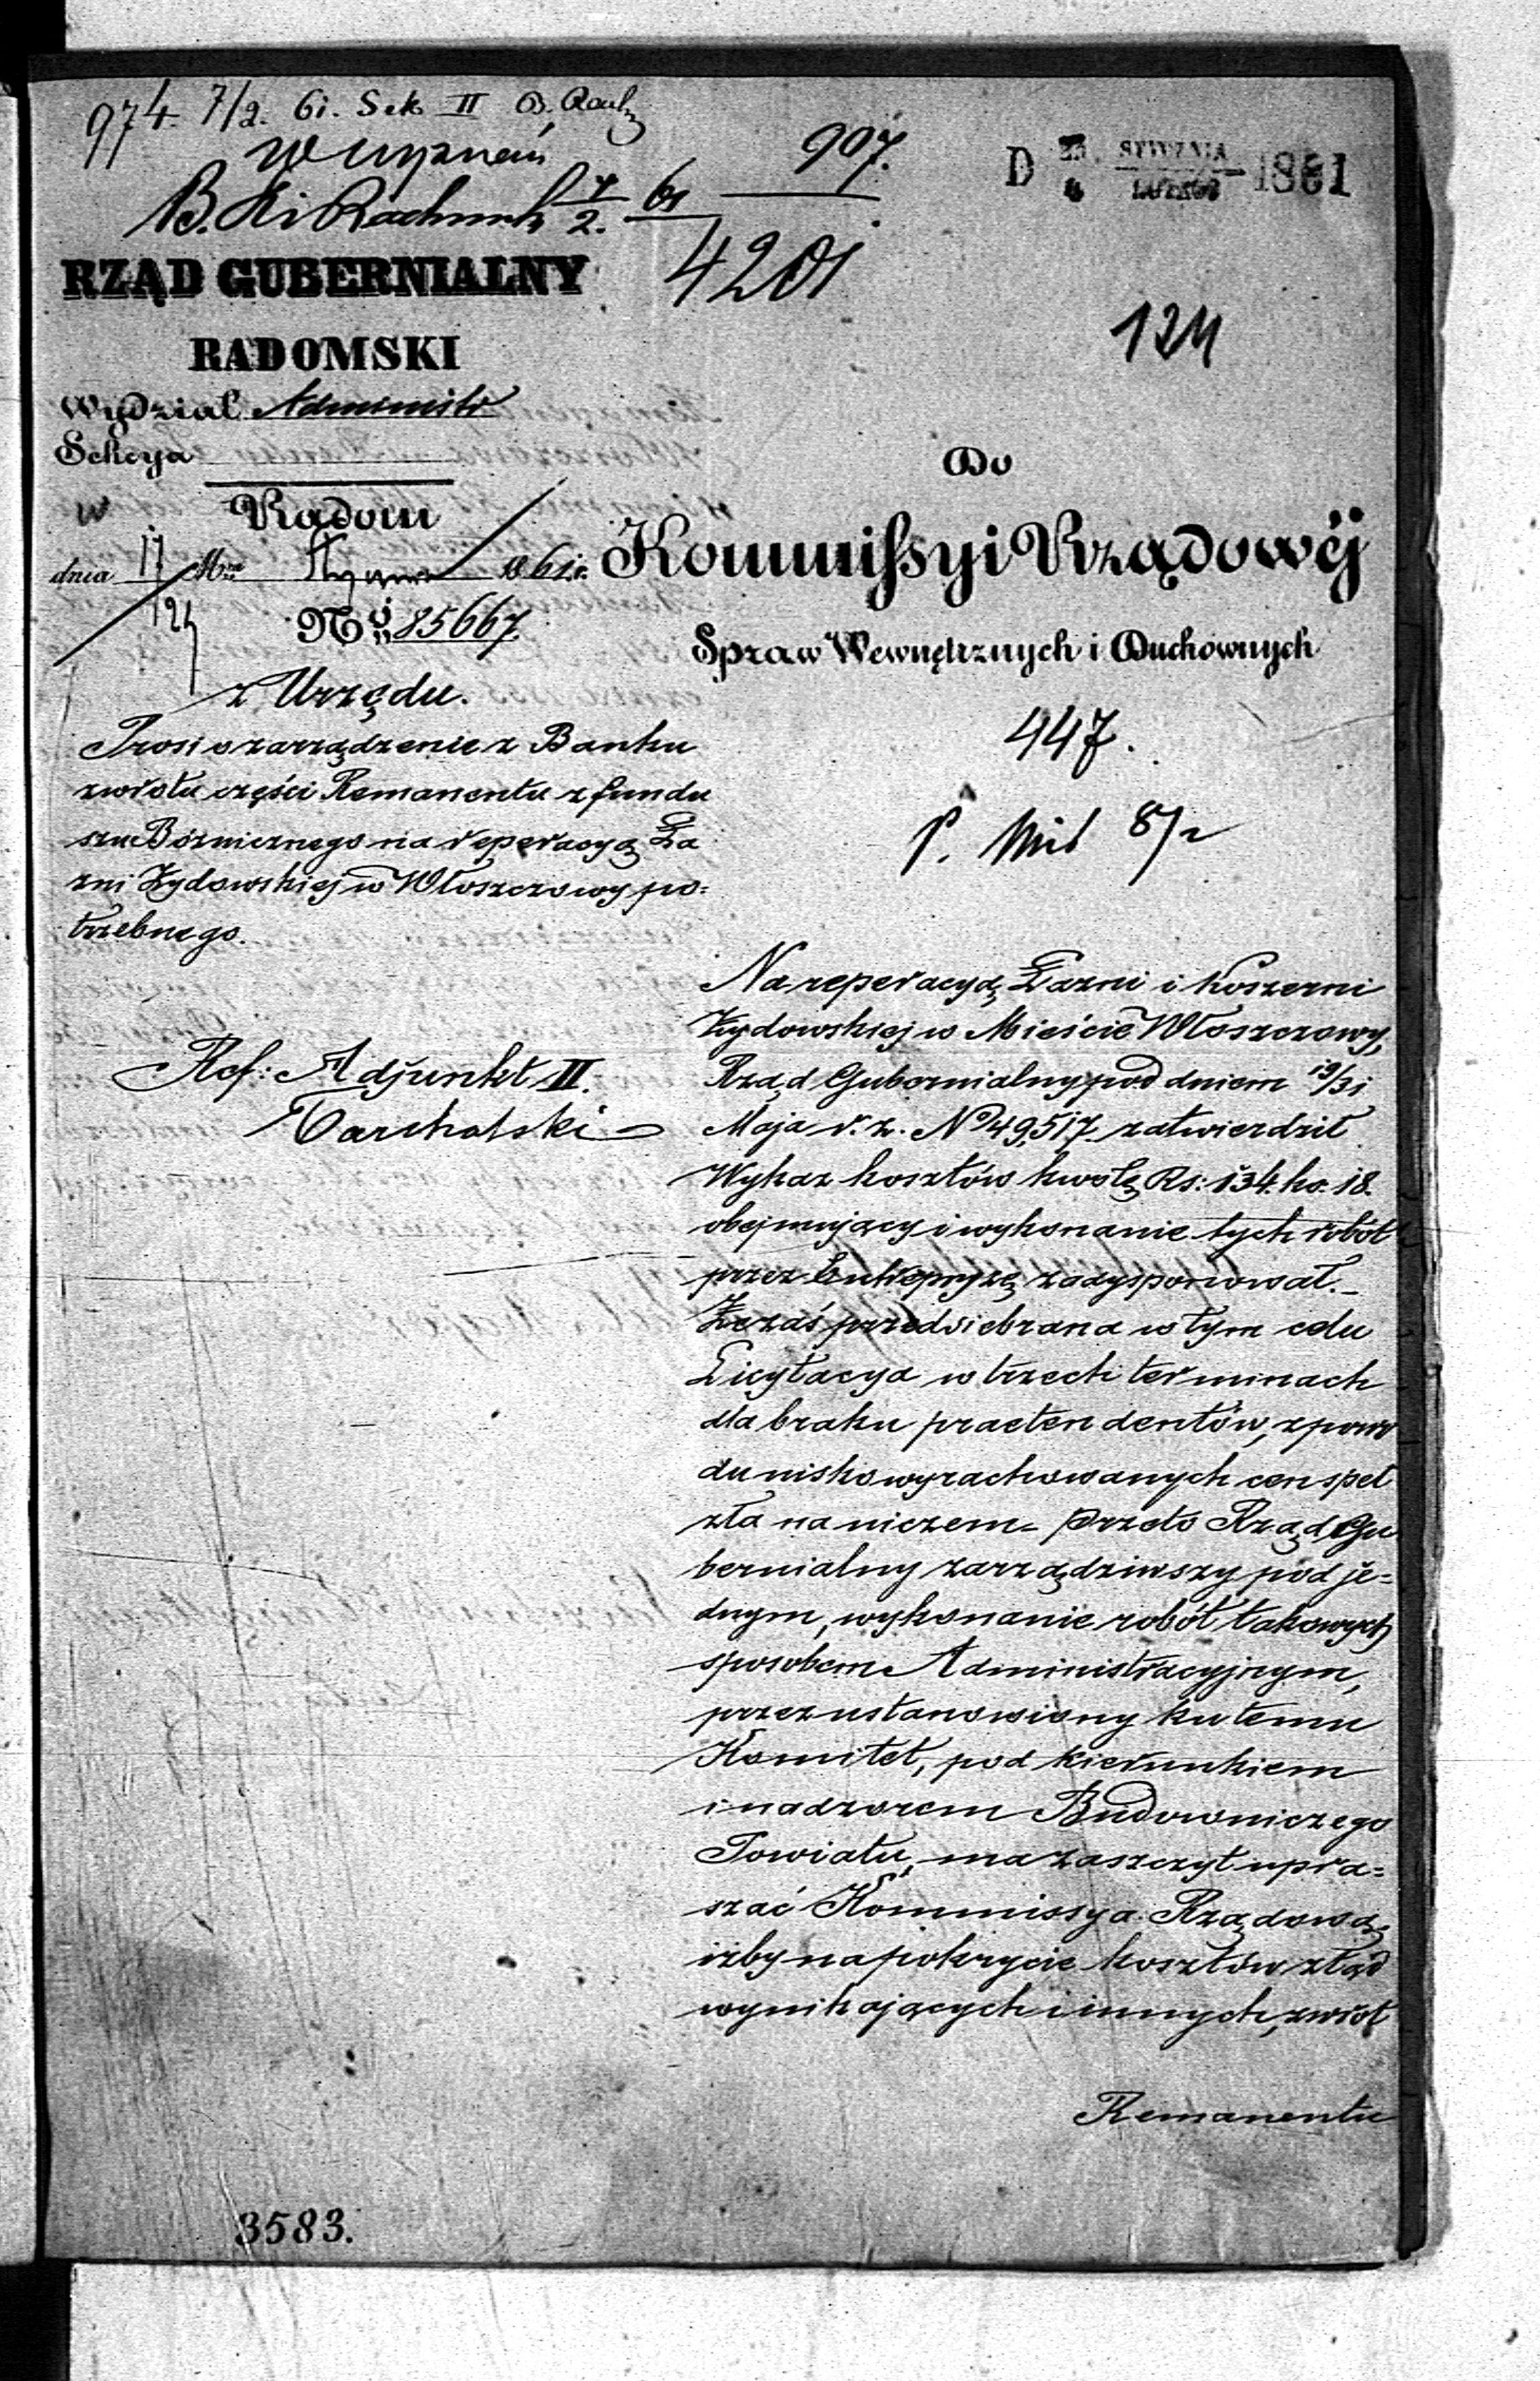 974. 7/2. 61. Sek II B. Rach
W wyznań
B. Ki Rachunk 7/2. 61
907.
4201
D 23 STYCZNIA 1861
4 LUTEGO
124
RZĄD GUBERNIALNY
RADOMSKI
Wydział Administr
Sekcya
w Radom
dnia 17 Mca Stycznia 1861 r.
No 85667.
z Urzędu.
Prosi o zarządzenie z Banku
zwrotu części Remanentu z fundu
szu Bózniczego na reperacyą Ła
zni Żydowskiej w Włoszczowy po=
trzebnego.
Ref: Adjunkt II.
Do
Kommissyi Rządowéj
Spraw Wewnętrznych i Duchownych
447.
P. Mil 8/2
Na reperacyą Łazni i koszerni
Żydowskiej w Mieście Włoszczowy,
Rząd Gubernialny pod dniem 19/31
Maja r. z. No 49,517 zatwierdził
Wykaz kosztów kwotę Rs: 134. ko. 18.
obejmujący i wykonanie tych robót
przez Entrepryzę zadysponował._
Że zaś przedsiebrana w tym celu
Licytacya w trzech terminach
dla braku praetendentów, z powo
du nisko wyrachowanych cen speł
zła na niczem_ Przeto Rząd Gu
bernialny zarządziwszy pod je=
dnym, wykonanie robót takowych
sposobem Administracyjnym,
przez ustanowiony ku temu
Komitet, pod kierunkiem
i nadzorem Budowniczego
Powiatu, ma zaszczyt upra=
szać Kommissya Rządową,
iżby na pokrycie kosztów ztąd
wynikających i innych, zwrot
Remanentu
3583.